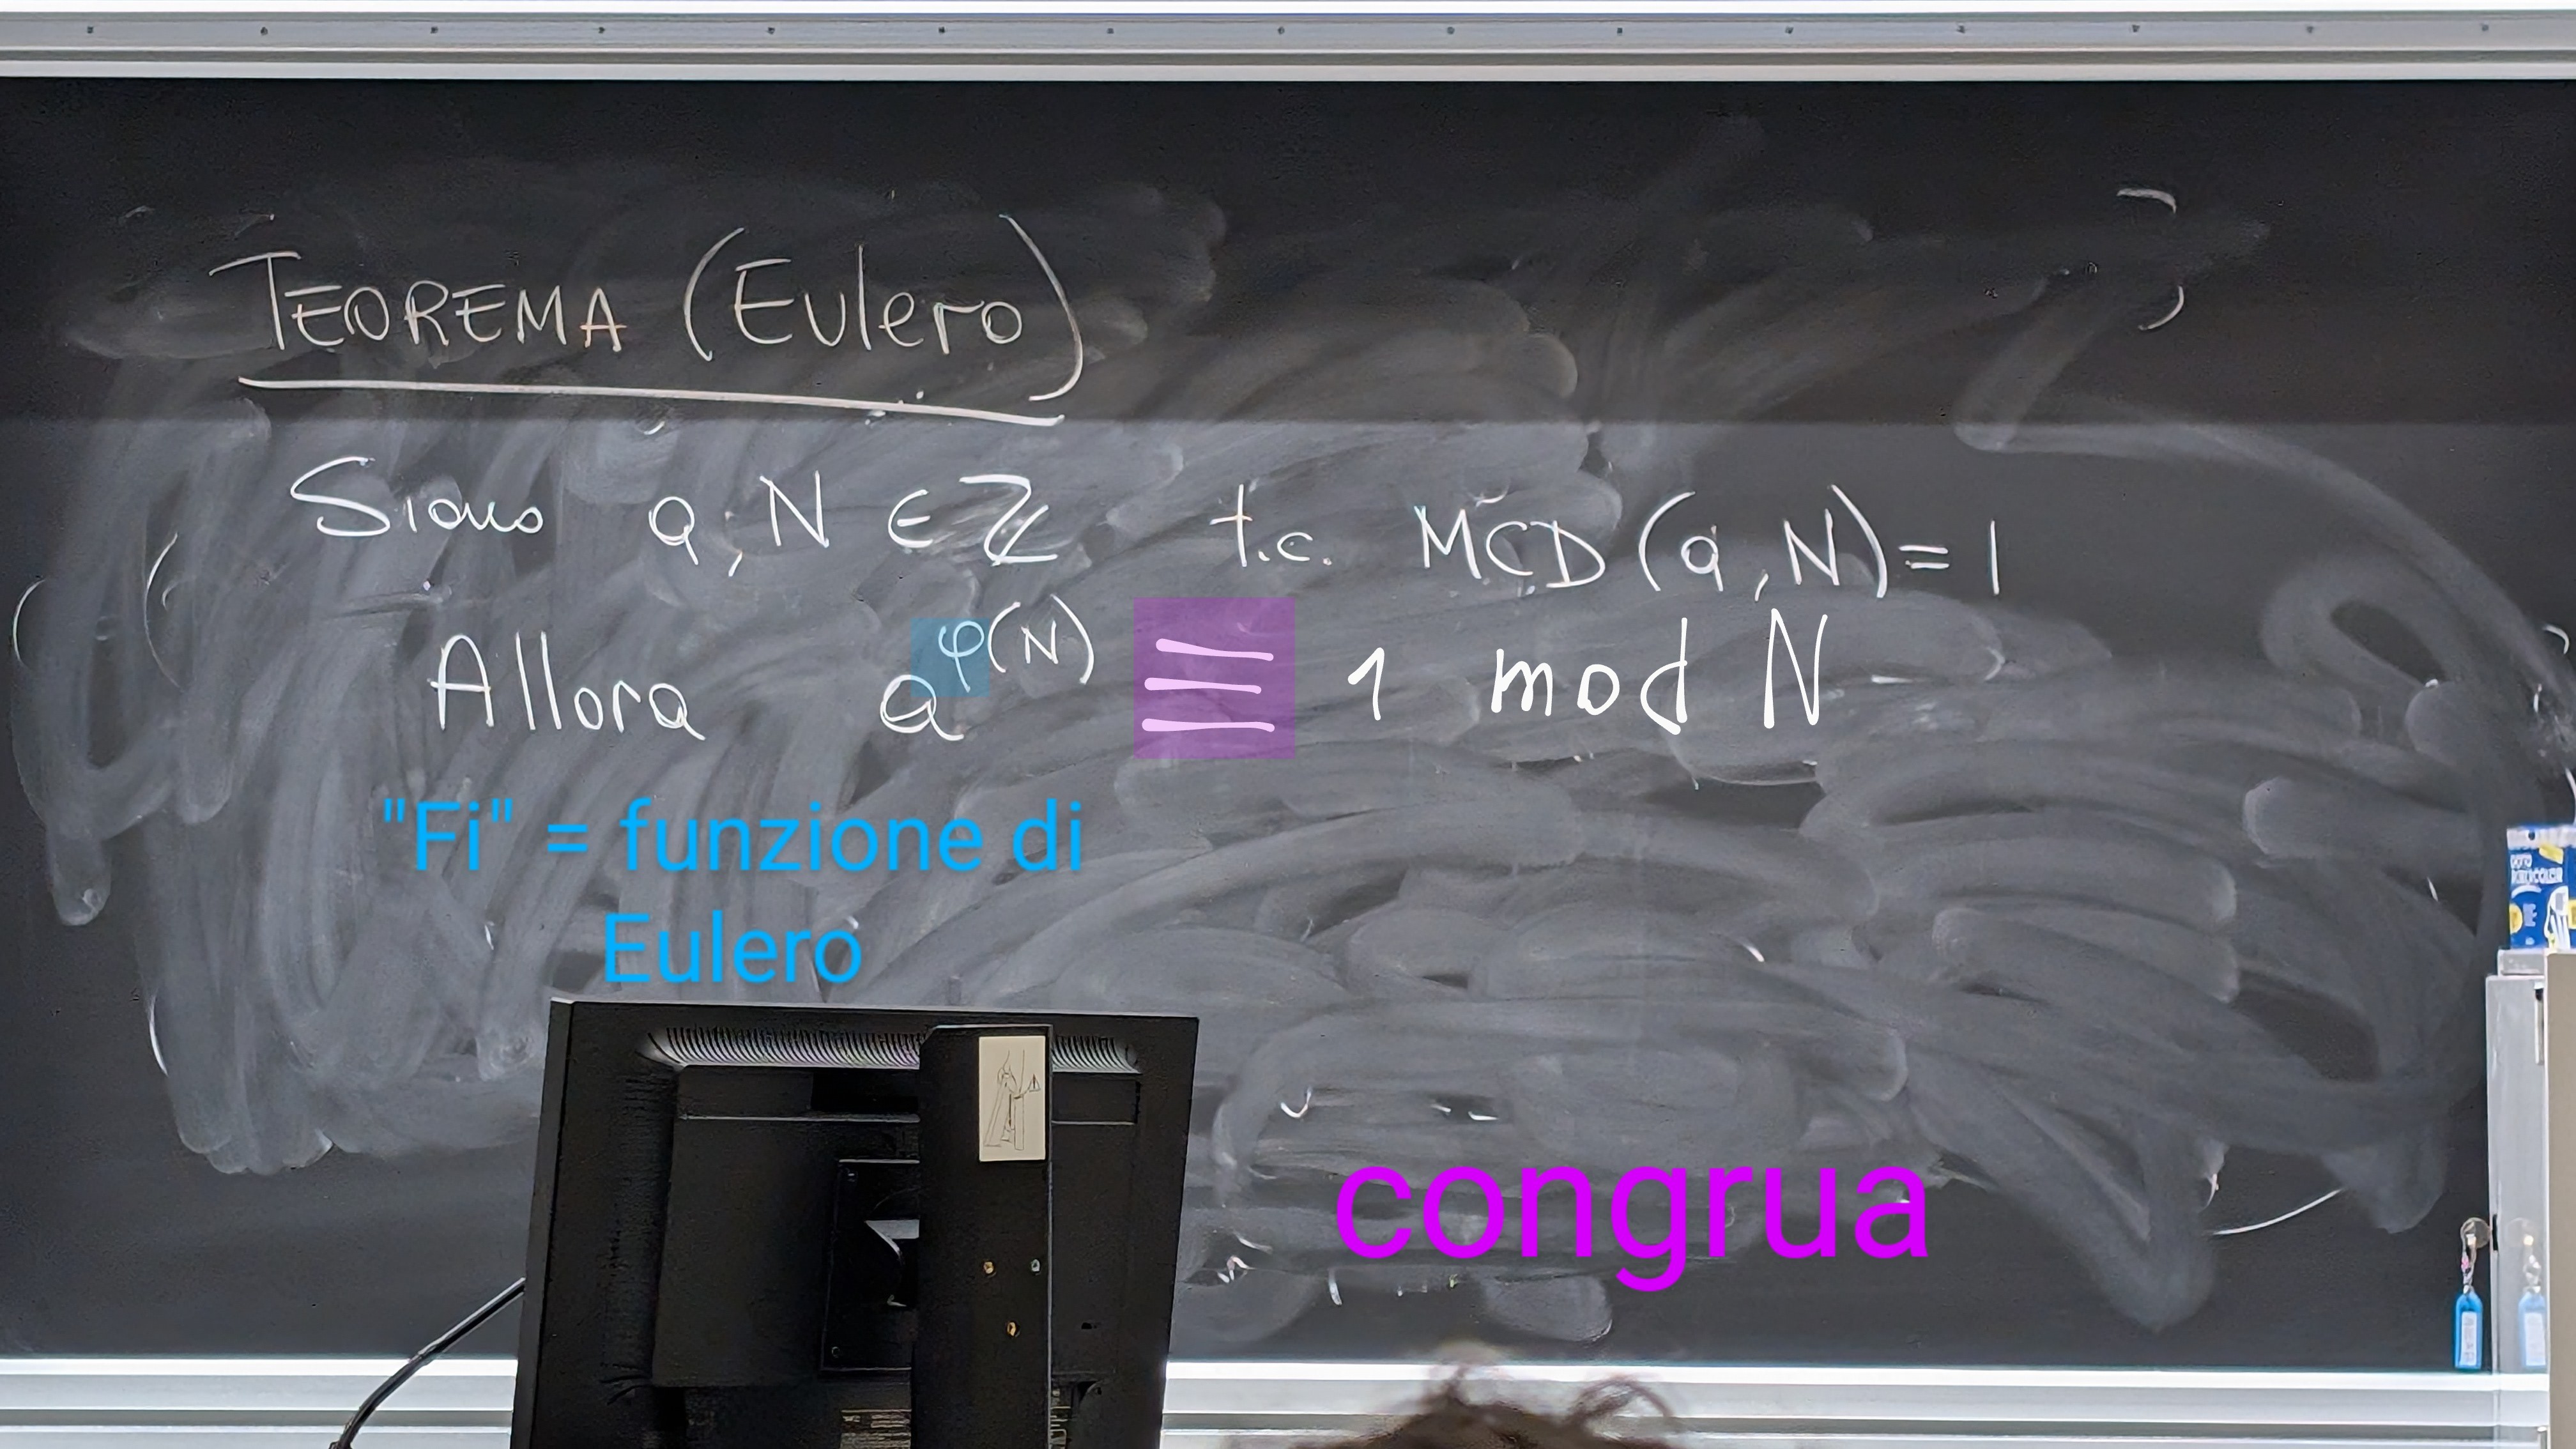 TEOREMA (Eulero)
Siano a, N ∈ ℤ t.c. MCD (a, N) = 1
Allora a^φ(N) ≡ 1 mod N
"Fi" = funzione di
Eulero
congrua